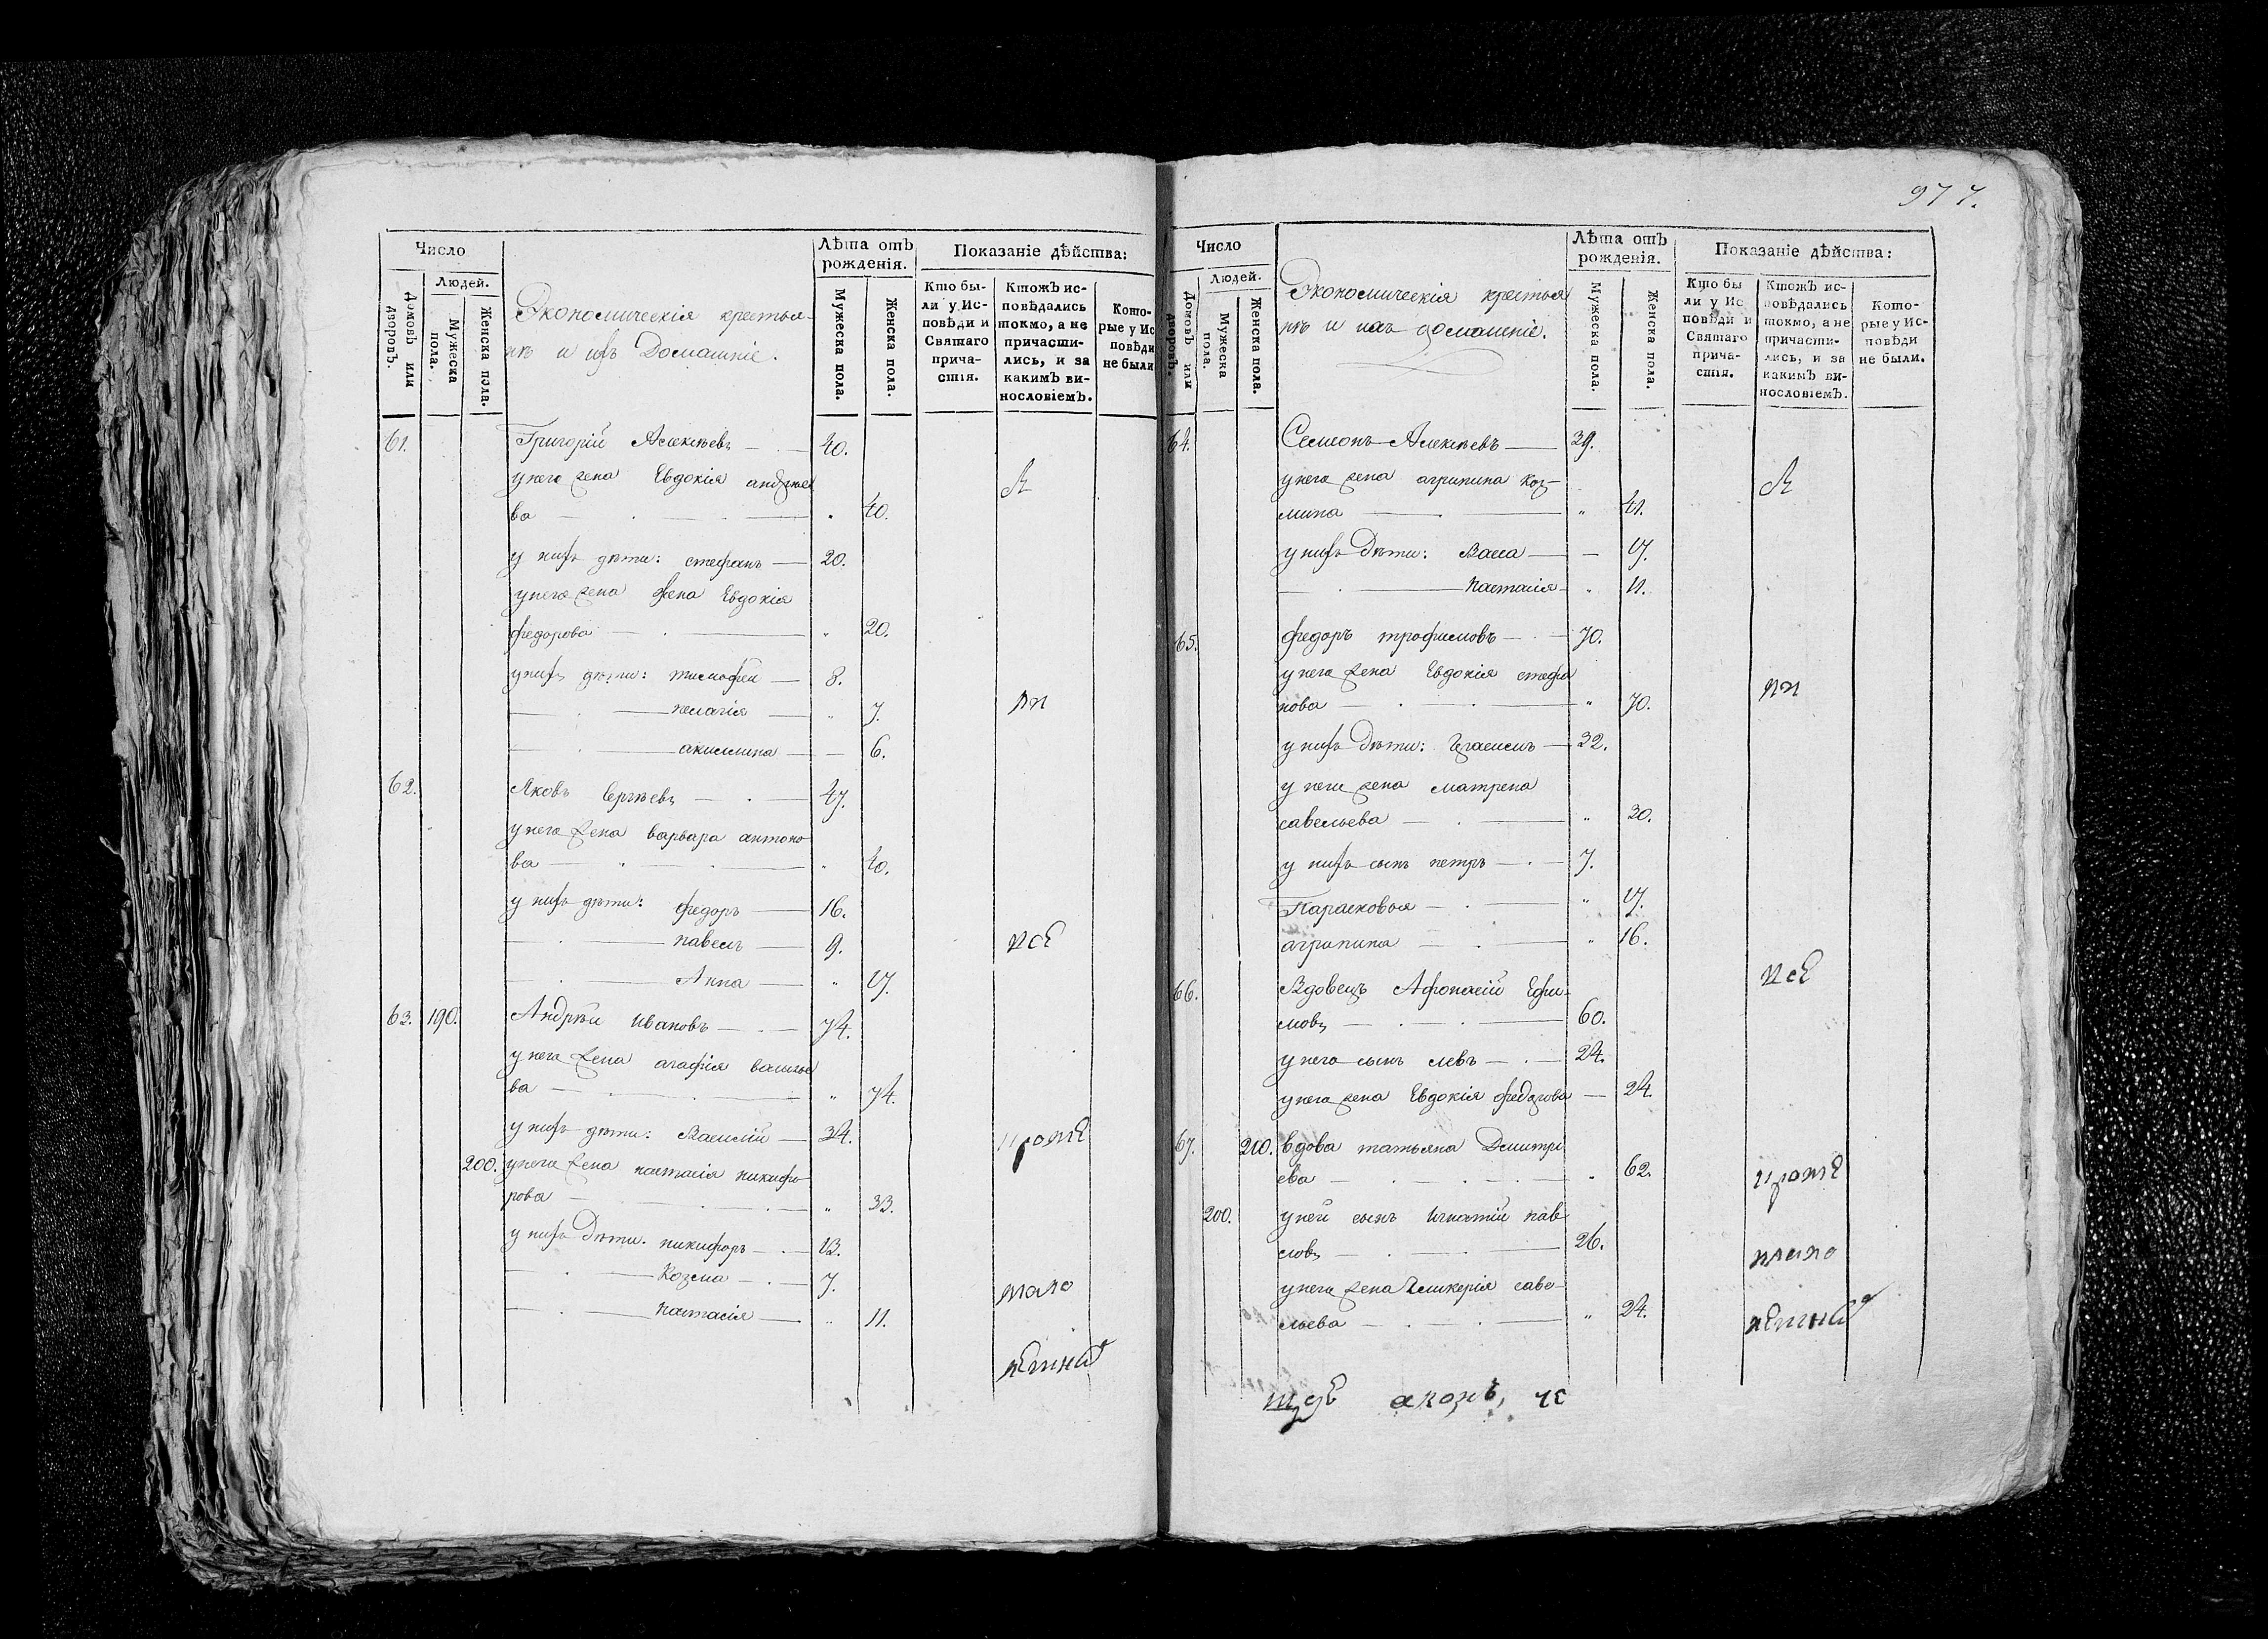 977.
Число
Людей.
Домовъ или дворовъ.
Мужеска пола.
Женска пола.
Экономическія крестья-
не и ихъ Домашніе.
Лѣта отъ рожденія.
Мужеска пола.
Женска пола.
Показаніе дѣйства:
Кто бы-
ли у Ис-
повѣди и
Святаго
прича-
стія.
Ктожъ ис-
повѣдались
токмо, а не
причасти-
лись, и за
какимъ ви-
нословіемъ.
Кото-
рые у Ис
повѣди
не были
61. Григорій Алексѣевъ — 40.
у него жена Евдокія андрѣе
ва — 40.
у нихъ дѣти: стефанъ — 20.
у него жена Евдокія
федорова — 20.
у нихъ дѣти: тимофей — 8.
— пелагія — 7.
— акилина — 6.
62. Яковъ Сергѣевъ — 47.
у него жена варвара антоно
ва — 40.
у нихъ дѣти: федоръ — 16.
— павелъ — 9.
— Анна — 17.
63. 190. Андрѣй Ивановъ — 74.
у него жена агафія василье
ва — 74.
у нихъ дѣти: Василій — 34.
200. у него жена настасія никифо
рова — 33.
у нихъ Дѣти: никифоръ — 13.
— Козма — 7.
— настасія — 11.
Число
Людей.
Домовъ или дворовъ.
Мужеска пола.
Женска пола.
Экономическія крестья
не и ихъ домашніе.
Лѣта отъ рожденія.
Мужеска пола.
Женска пола.
Показаніе дѣйства:
Кто бы
ли у Ис
повѣди и
Святаго
прича-
стія.
Ктожъ ис-
повѣдались
токмо, а не
причасти-
лись, и за
какимъ ви-
нословіемъ.
Кото-
рые у Ис-
повѣди
не были.
64. Семеонъ Алексѣевъ — 39.
у него жена агрипина коз-
мина — 41.
у нихъ Дѣти: Васса — 17.
— настасія — 11.
65. федоръ трофимовъ — 70.
у него жена Евдокія стефа
нова — 70.
у нихъ Дѣти: — 32.
у него жена матрена
савельева — 30.
у нихъ сынъ петръ — 7.
Парасковья — 17.
агрипина — 16.
66. Вдовецъ Афонасій Ефи-
мовъ — 60.
у него сынъ левъ — 24.
у него жена Евдокія федорова — 24.
67. 210. вдова татьяна Димитри
ева — 62.
200. у ней сынъ Игнатій пав
ловъ — 26.
у него жена Гликерія саве-
льева — 24.